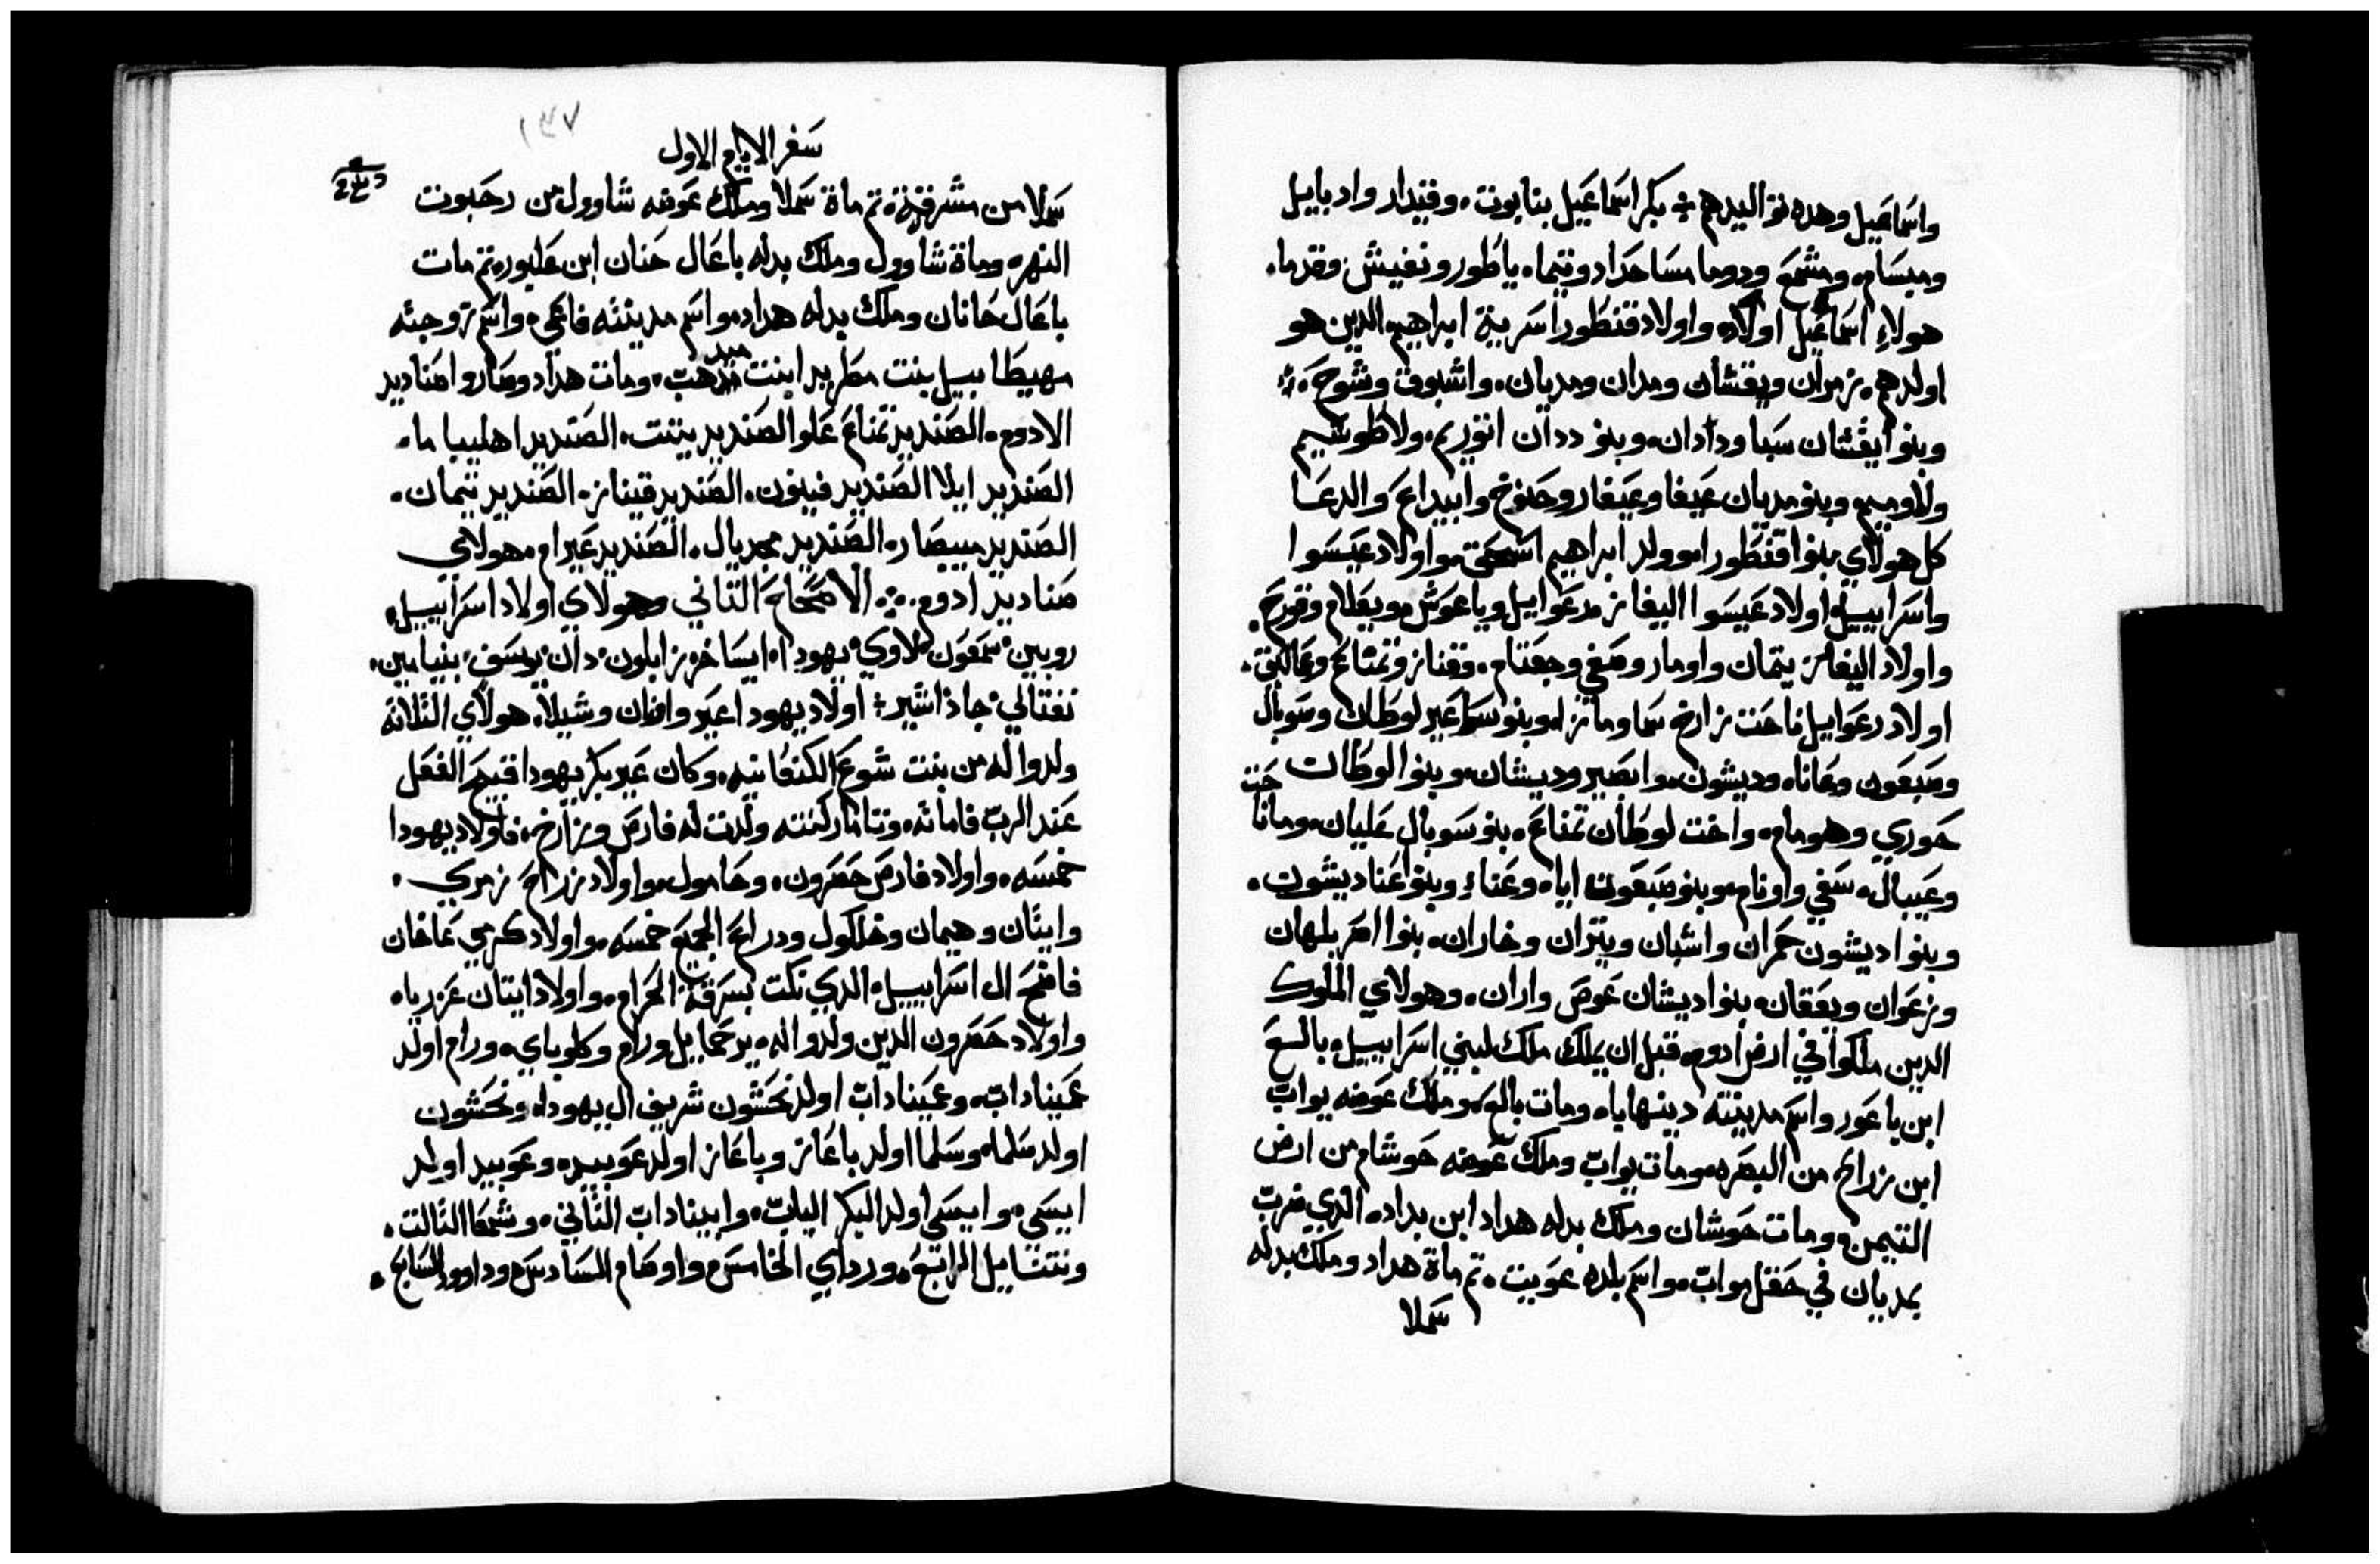 واسماعيل وهده تواليدهم ⁘ بكر اسماعيل بنايوت، وقيدار وادبايل
وميسام، ومشمع ودوما مسا حداد وتيما، ياطور ونفيش وقدما،
هولاءِ اسماعيل اولاده واولاد قنطورا سرية ابراهيم الدين هو
اولدهم، زمران ويقشان ومدان ومديان، واشبوق وشوح ،⁘
وبنوا يقشان سبا ودادان، وبنو ددان اتوريم، ولاطوشيم
ولاوميم، وبنو مديان عيفا وعيفار وحنوخ وابيداع والدعا
كل هولاي بنوا قنطورا، وولد ابراهيم اسحق، واولاد عيسوا
واسراييل، اولاد عيسوا اليفاز، رعوايل وياعوش، ويعلام وقورح،
واولاد اليفاز يتمان واومار وصفي وجعتام، وقناز وتمناع وعمالق،
اولاد رعوايل ناحت زارخ سما وماز، وبنو سواعير لوطان وسوبال
وصبعون وعانا، وديشون، وابصير وديشان، وبنوا لوطان
حوري وهومام، واخت لوطان تمناع، بنو سوبال عليان، ومانا حت
وعيبال، سفي واونام، وبنو صبعون اياه وعناءِ وبنوا عنا ديشون،
وبنوا ديشون حمران واشبان ويتران وخاران، بنوا اصر بلهان
وزعوان ويعقان، بنوا ديشان عوص واران، وهولاي الملوك
الدين ملكوا في ارض ادوم، قبل ان يملك ملك لبني اسراييل، بالع
ابن باعور واسم مدينته دينهابا، ومات بالع، وملك عوضه يواب
ابن زراح من البصره، ومات يواب وملك عوضه حوشام من ارض
التيمن، ومات حوشان وملك بدله هداد ابن بداد، الدي ضرب
بمديان في حقل مواب، واسم بلده عويت، تم ماة هداد وملك بدله
سملا
١٣٧
سفر الايام الاول
سملا من مشرقة، تم ماة سملا وملك عوضه شاوول من رحبوت
النهر، وماة شاوول وملك بدله باعال حنان ابن عكبور، تم مات
باعال حانان وملك بدله هداد، واسم مدينته فاعي، واسم زوجته
مهيطابييل بنت مطريد ابنت ميدهب، ومات هداد وصاروا صناديد
الادوم، الصنديد تمناع علوا الصنديد يتنت، الصنديد اهليباما،
الصنديد ايلا الصنديد فينون، الصنديد قيناز، الصنديد تيمان،
الصنديد مبيصار، الصنديد مجديال، الصنديد عيرام، هولاي
صناديد ادوم ⁘ الاصحاح التاني وهولاي اولاد اسراييل،
روبين، سمعون، لاوي، يهودا، ايساخر، زابلون، دان، يوسف، بنيامين،
نفتالي، جاد اشير ⁘ اولاد يهودا عير واونان وشيلا، هولاي التلاته
ولدوا له من بنت شوع الكنعانيه، وكان عير بكر يهودا قبيح الفعل
عند الرب فاماته، وتامار كنته ولدت له فارص وزارخ، فاولاد يهودا
خمسه، واولاد فارص حصرون، وحامول، واولاد زراح زمري،
وايتان وهيمان وخلكول ودراع الجميع خمسه، واولاد كرمي عاخان
فاضح ال اسراييل، الدي نكت بسرقة الحرام، واولاد ايتان عزرياه
واولاد حصرون الدين ولدوا له، يرحمايل ورام وكلوباي، ورام اولد
عميناداب، وعميناداب اولد نحشون شريف ال يهودا، ونحشون
اولد سلما، وسلما اولد باعاز وباعاز اولد عوبيد، وعوبيد اولد
ايسي، وايسي اولد البكر الياب، وابيناداب التاني، وشمعا التالت،
ونتنايل الرابع، ورداي الخامس، واوصام السادس، وداوود السابع،